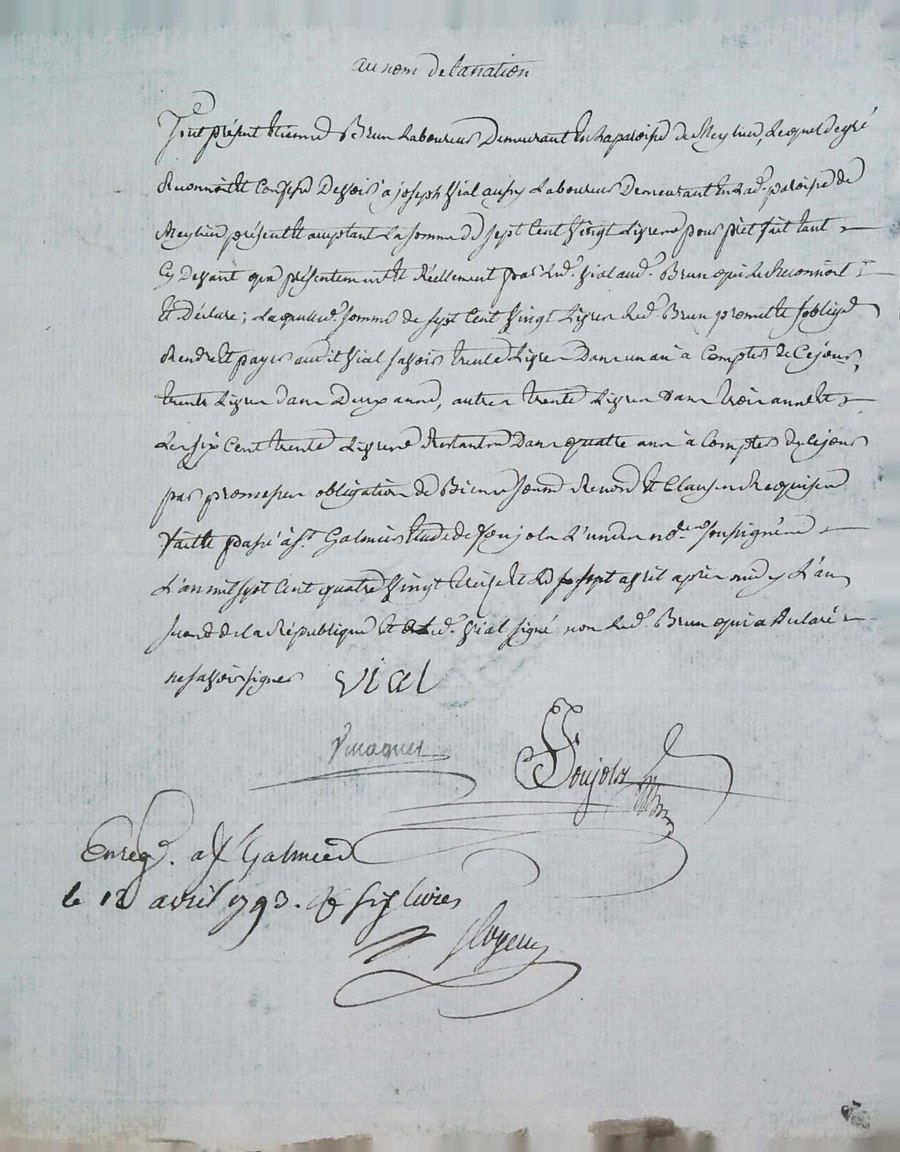 au nom de la nation
fut présent Etienne Brun Laboureur Demeurant En La paroisse de Meylieu, Lequel de gré
Reconnoit Et Confesse Devoir a joseph Vial aussy Laboureur Demeurant En Lad. paroisse de
Meylieu présent Et acceptant La somme de sept Cent Vingt Livres pour prêt fait tant
Cy Devant que présentement Et Réellement par Led. Vial aud. Brun qui Le Reconnoit
Et Déclare; Laquelle d. somme de sept Cent Vingt Livres Led. Brun promet Et s'oblige
Rendre Et payer audit Vial savoir trente Livres Dans un an à Compter de Ce jour,
trente Livres dans Deux année, autres trente Livres Dans trois année Et
Les six Cent trente Livres Restantes Dans quatre ans à Compter du Ce jour
par promesses obligation de Biens Renon Et Clauses Requises
faitte passé à St. Galmier Etude de Poujolz L'un des no.res soussignés
L'an mil sept Cent quatre Vingt treize Et Le sept avril après midy L'an
second de la République Et Led. Vial signé non Led. Brun qui a déclaré
ne savoir signer Vial
Poujolz
Enreg. a St Galmier
le 12 avril 1793. six livres